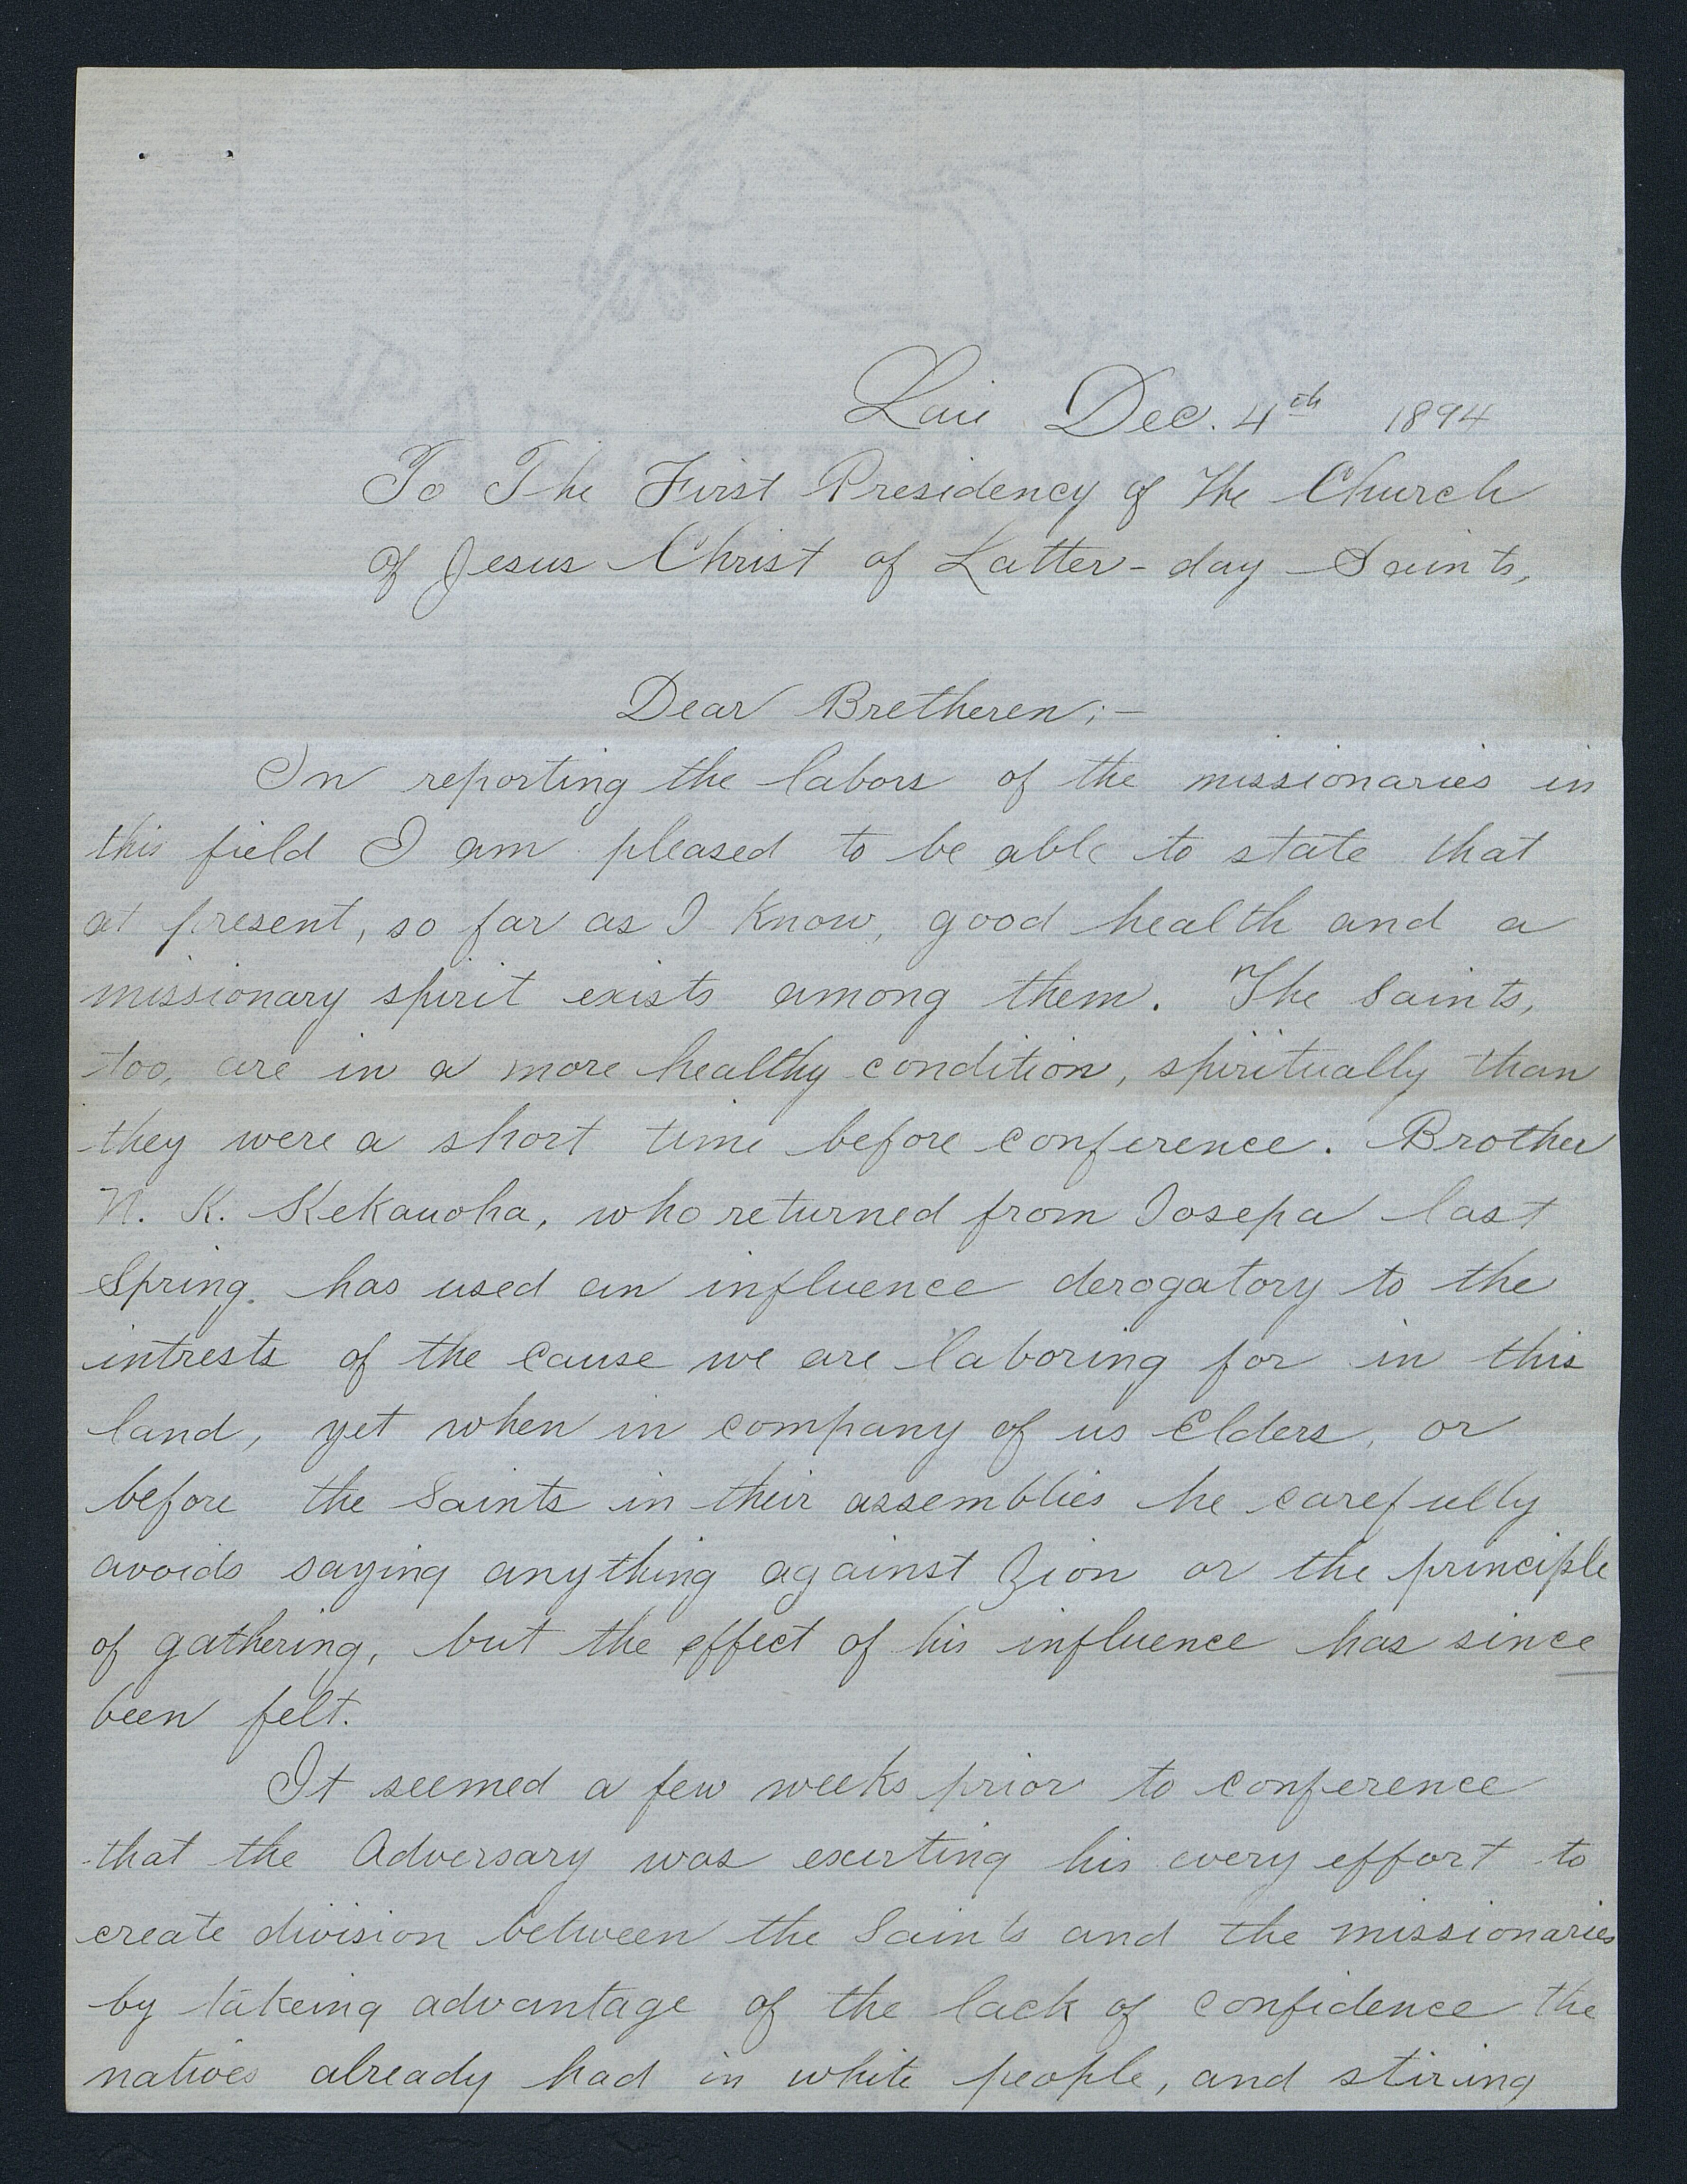 Laie Dec. 4th 1894
To The First Presidency of The Church
of Jesus Christ of Latter-day Saints,
Dear Bretheren;-
In reporting the labors of the missionaries in
this field I am pleased to be able to state that
at present, so far as I know, good health and a
missionary spirit exists among them. The Saints,
too, are in a more healthy condition, spiritually than
they were a short time before conference. Brother
N. K. Kekauoha, who returned from Iosepa last
Spring. has used an influence derogatory to the
intrests of the cause we are laboring for in this
land, yet when in company of us Elders, or
before the Saints in their assemblies he carefully
avoids saying anything against Zion or the principle
of gathering, but the effect of his influence has since
been felt.
It seemed a few weeks prior to conference
that the Adversary was exerting his every effort to
create division between the Saints and the missionaries
by takeing advantage of the lack of confidence the
natives already had in white people, and stiring